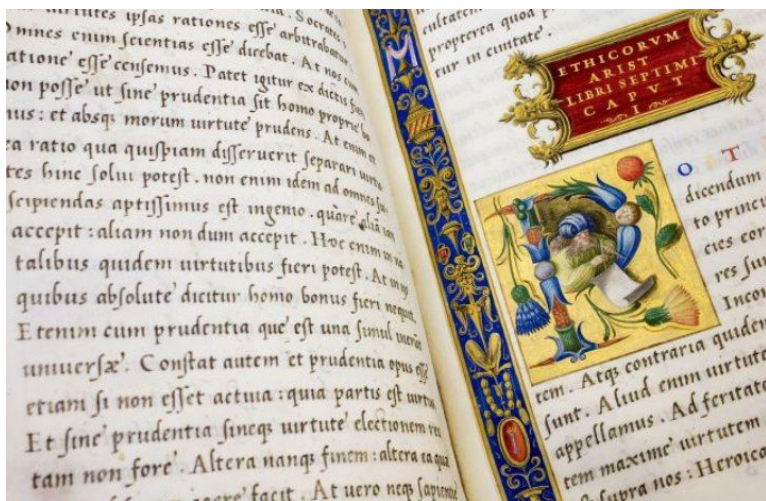 uirtutes ipsas rationes esse arbitrabatur
Omnes enim scientias esse dicebat. At nos cum
ratione esse censemus. Patet igitur ex dictis
non posse ut sine prudentia sit homo proprie
nus: et absq; morum uirtute prudens. At enim et
ea ratio qua quispiam disseruerit separari
tes hinc solui potest. non enim idem ad omnes
scipiendas aptissimus est ingenio. quare aliam iam
accepit: aliam non dum accepit. Hoc enim
talibus quidem uirtutibus fieri potest. At in
quibus absolute dicitur homo bonus fieri nequit.
Etenim cum prudentia que est una simul
uniuersæ. Constat autem et prudentia opus esse
etiam si non esset actiua: quia partis est uirtus
Et sine prudentia sineq; uirtute electionem
tam non fore. Altera nanq; finem: altera ea
facit. At uero neq; sapientie
M
propterea quod
tur in ciuitate.
ETHICORVM
ARIST
LIBRI SEPTIMI
CAPVT
I
P
O T
dicendum
to princi
cies
res sun
Incon
tem. Atq; contraria quidem
sunt. Aliud enim uirtutem
appellamus. Ad feritatem
tem maxime uirtutem
supra nos: Heroica